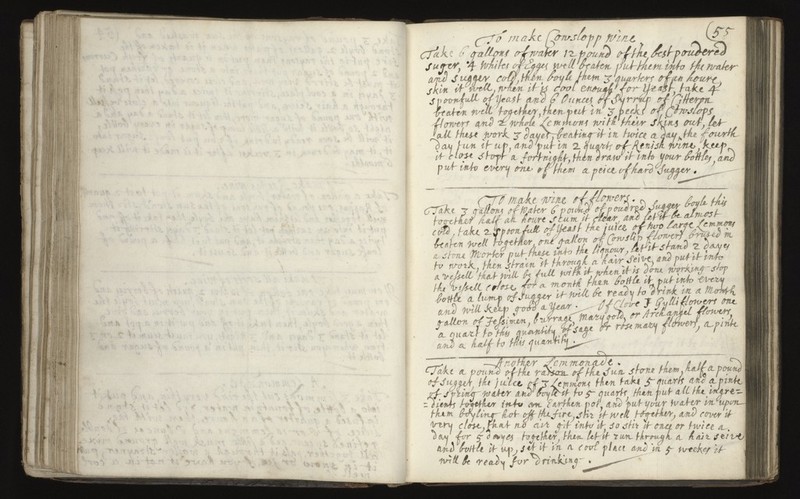 (55
To make Cowslopp wine
Take 6 gallons of water 12 pound of the best poudered
suger, 4 whites of Egges well beaten put them into the water
and Sugger cold, then boyle them 3 quarters of an houre
skin it well, when it is cool enough for Yeast take 4
spoonfull of Yeast and 6 Ounces of Syrrup of Citteron
beaten well together, then put in 3 pecks of Cowslops
flowers and 2 whole Lemmons with their skins out, let
all these work 3 dayes, beating it in twice a day, the fourth
day tun it up, and put in 2 quarts of Renish wine, keep
it close stopt a fortnight, then draw it into your bottles, and
put into every one of them a peice of hard Sugger.
To make wine of flowers.
Take 3 gallons of Water 6 pound of poudred Sugger boyle this
together half an houre, scum it clear and let it be almost
cold, take 2 spoonfull of Yeast the juice of two large Lemmons
beaten well together, one gallon of Cowslop flowers bruized in
a stone Morter put these into the liquour, let it stand 2 dayes
to work, then strain it through a hair Seive, and put it into
a vessell that will be full with it when it is done working stop
the vessell close for a month then bottle it, put into every
bottle a lump of sugger it will be ready to drink in a Month
and will keep good a Year. Of Clove Gylliflowers one
gallon of Jessimen, burrage Marygold, or Archangel flowers,
a quart to this quantity, of sage or rosemary flowers, a pinte
and a half to this quantity.
Another Lemmonade.
Take a pound of the raison of the Sun stone them, half a pound
of Sugger, the juice of 3 Lemmons then take 5 quarts and a pinte
of Spring water and boyle it to 5 quarts, then put all the ingre-
dients together into an Earthen pot, and put your water in upon
them boyling hot off the fire, stir it well together, and cover it
very close, that no air git into it, so stir it once or twice a
day for 5 dayes together, then let it run through a hair seive
and bottle it up, set it in a cool place and in 5 weekes it
will be ready for drinking.